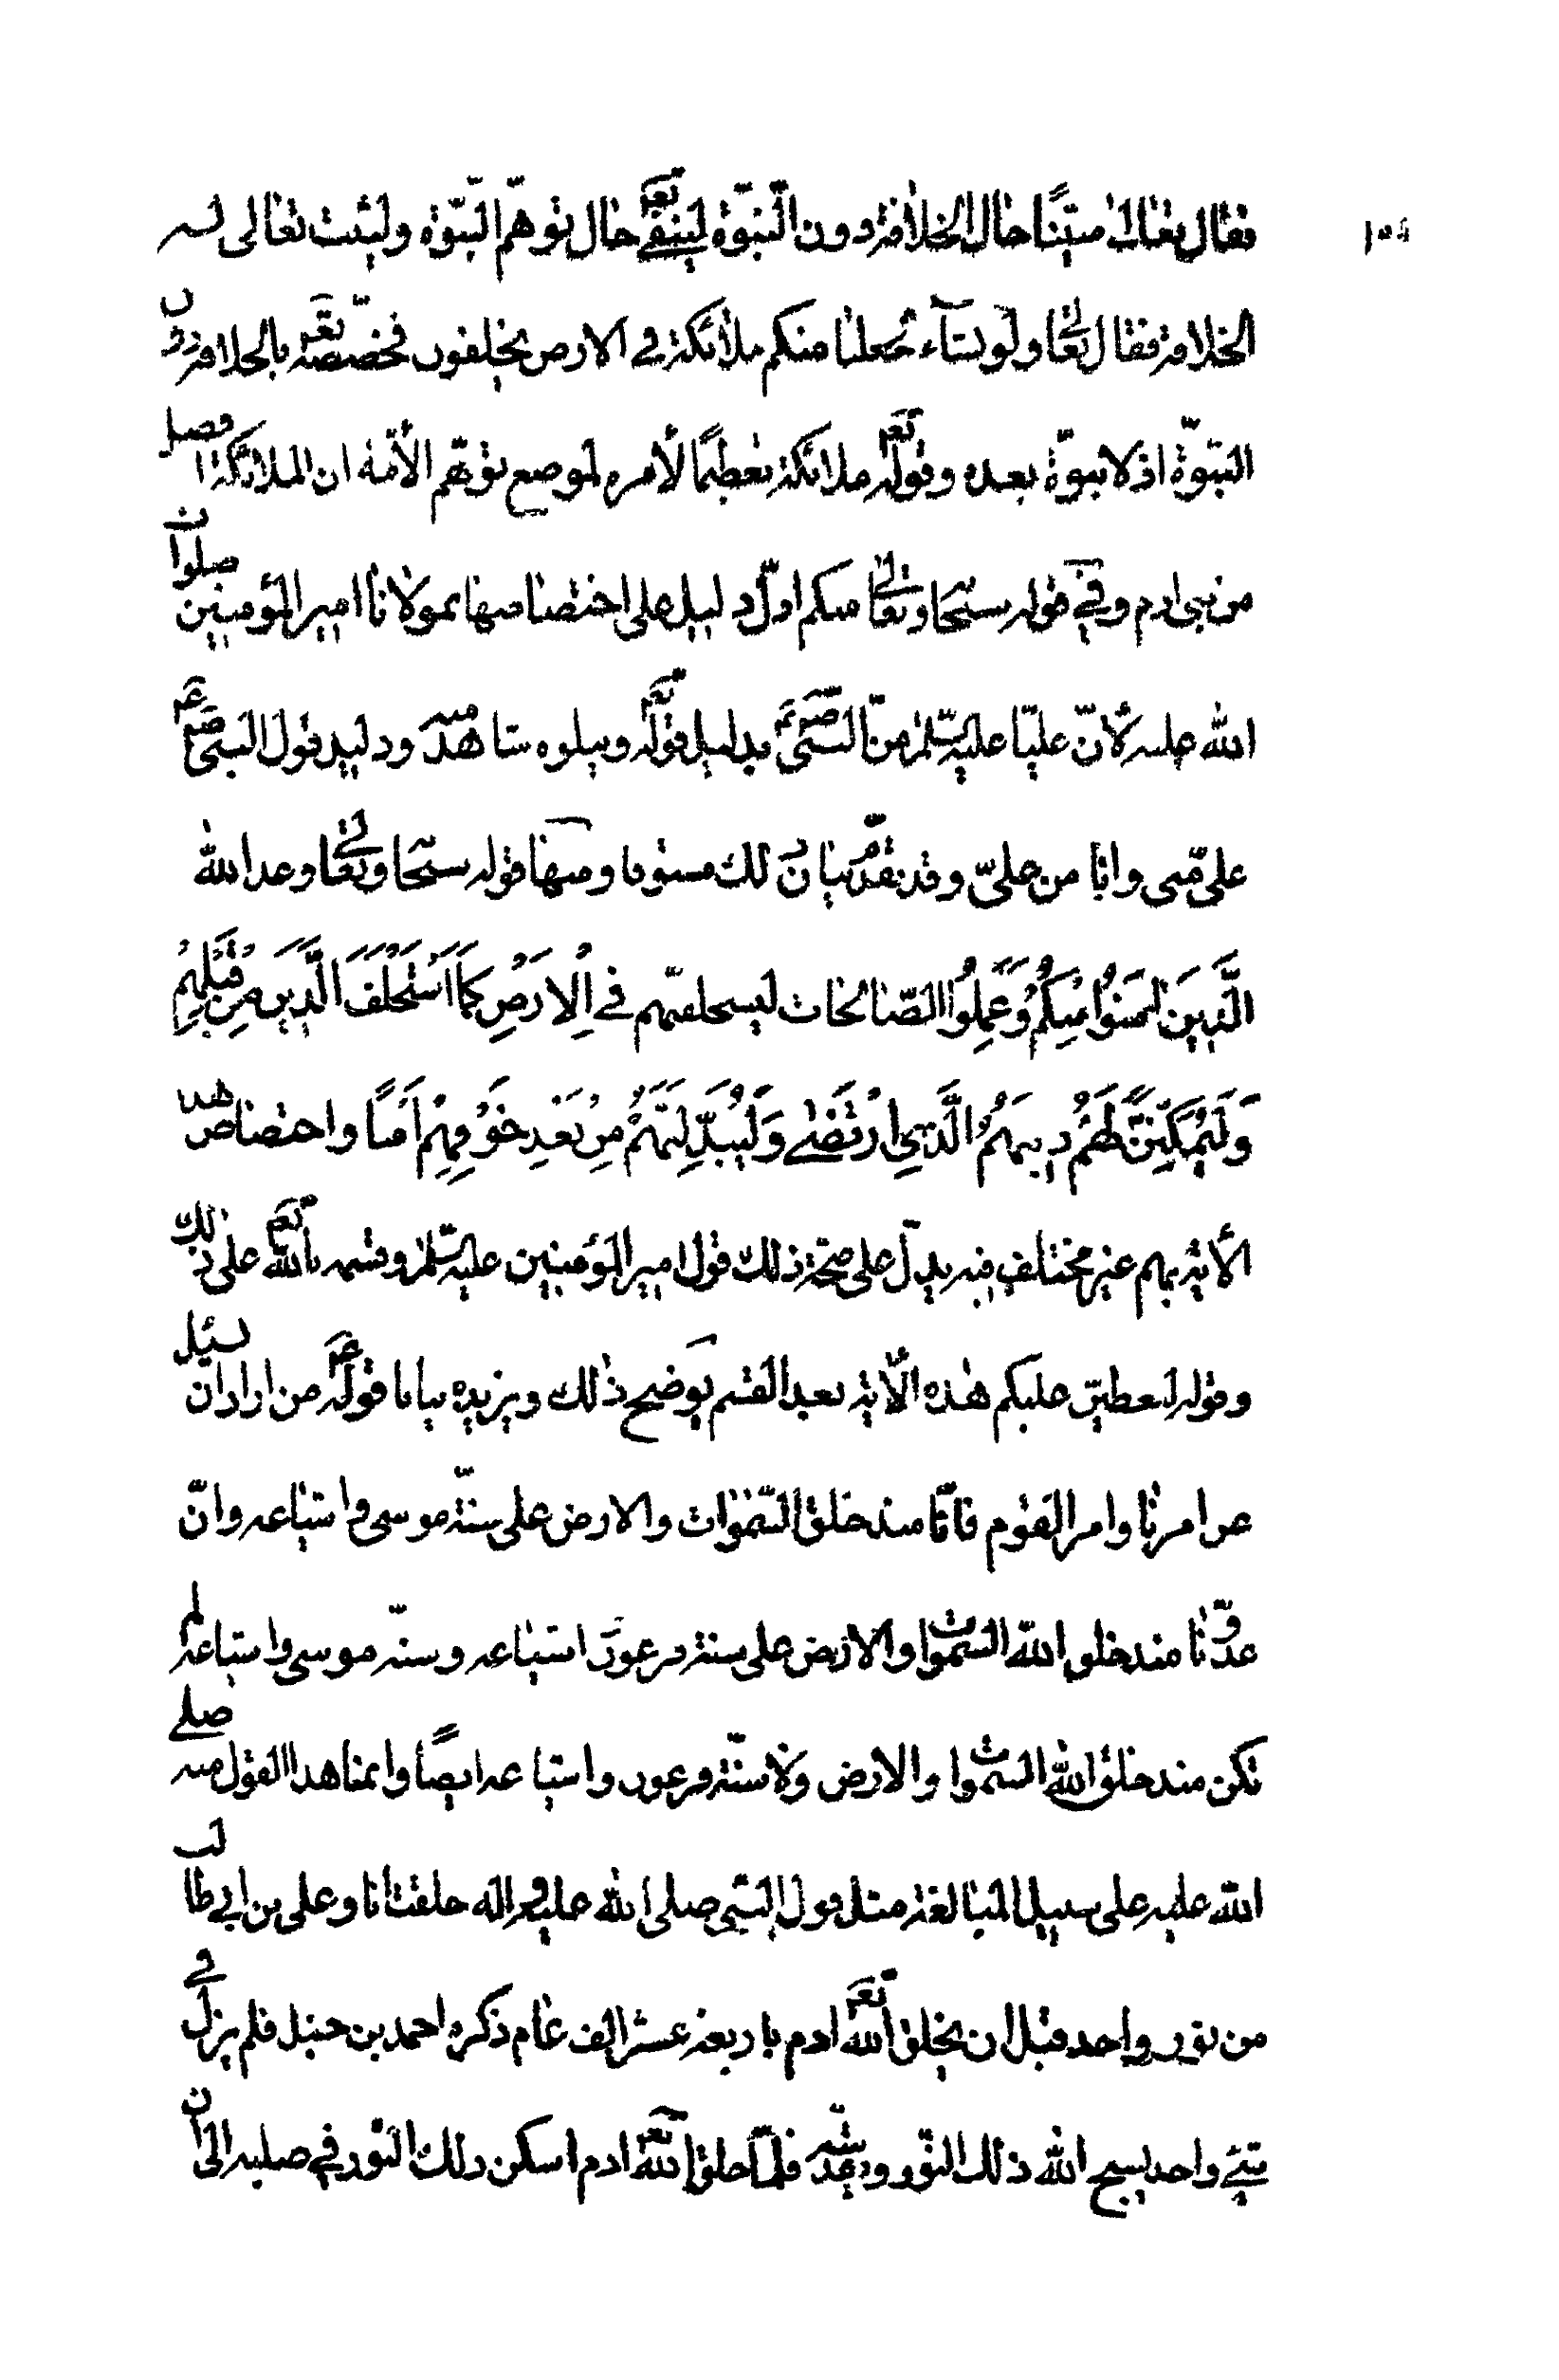 فقال تعالى مبيّنًا حال الخلافة دون النبوّة لينفي تعم حال توهّم النبوّة وليثبت تعالى له
الخلافة فقال تعا ولو نشآء لجعلنا منكم ملائكة في الارض يخلفون فخصّصه تعم بالخلافة دون
النبوّة اذ لا نبوّة بعده وقوله تعم ملائكة تعظيمًا لأمره لموضع توهّم الأمّة ان الملائكة افضل
من بنى ادم وفي قوله سبحا وتعا منكم اوّل دليل على اختصاصها بمولانا امير المؤمنين صلوات
الله عليه لأنّ عليّا عليه السّلم من النبيّ صم بدليل قوله تعم ويتلوه شاهد منه ودليله قول النبيّ صم
على منّى وانا من علىّ وقد تقدّم بيان ذلك مستوفا ومنها قوله سبحا وتعا وعد الله
الَّذينَ امَنوُا مِنكُمْ وَعَمِلُوا الصّالحات ليستخلفنّهم في اْلارَضِ كَمَا اَسْتَخْلَفَ الَّذينَ مِن قَبْلِهِمْ
وَلَيُمَكِّنَنَّ لَهُمْ دينَهُمُ الَّذي ارْتَضىٰ وَلَيُبَدِّلَنَّهُمْ مِنْ بَعْدِ خَوْفِهِمْ اَمنًا واختصاص هذه
الأية بهم غير مختلف فيه يدلّ على صحّة ذلك قول امير المؤمنين عليه السّلم وقسمه بالله تعم على ذلك
وقوله لتعطفنّ عليكم هذه الأية بعد القسم يوضح ذلك ويزيده بيانا قوله عم من اراد ان يسئل
عن امرنا وامر القوم فانّا منذ خلق السّموات والارض على سنّة موسى واشياعه وانّ
عدوّنا منذ خلق الله السّموات والارض على سنة فرعون واشياعه وسنّة موسى واشياعه لم
تكن منذ خلق الله السّموات والارض ولا سنّة فرعون واشياعه ايضًا وانما هذا القول منه صلى
الله عليه على سبيل المبالغة مثل قول النبي صلى الله عليه واله خلقت انا وعلى بن ابي طالب
من نور واحد قبل ان يخلق الله تعم ادم باربعة عشر الف عام ذكره احمد بن حنبل فلم يزل في
شيء واحد يسبح الله ذلك النّور فلمّا خلق الله تعم ادم اسكن ذلك النّور في صلبه الى ان